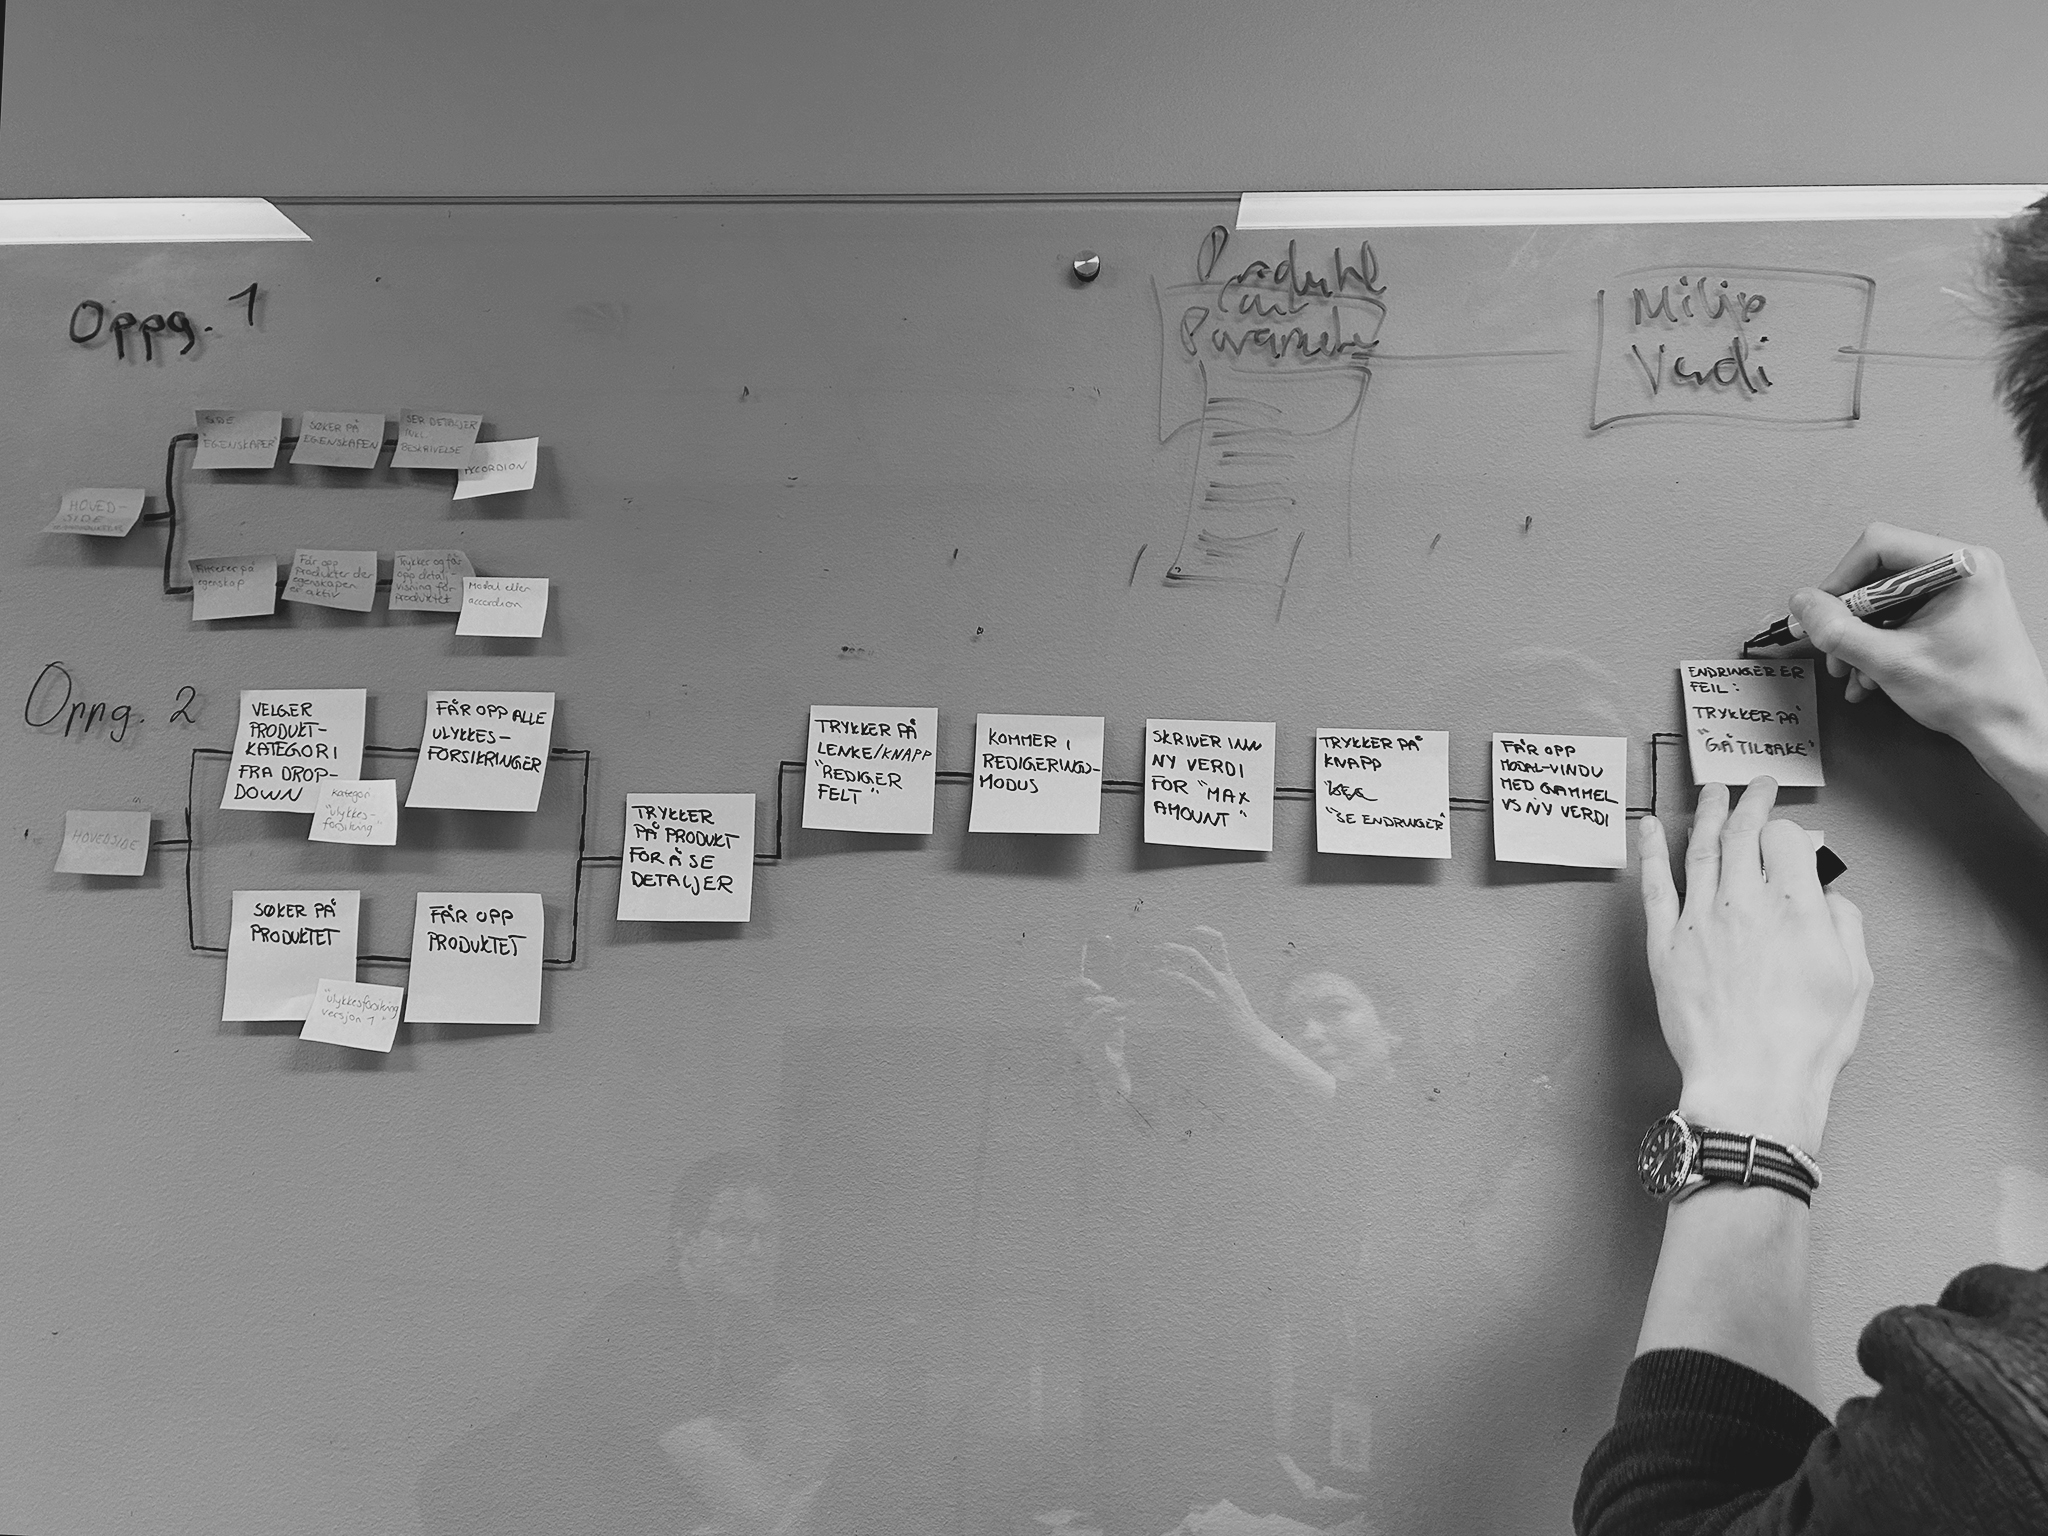 Oppg. 1
SIDE
"EGENSKAPER"
SØKER PÅ
EGENSKAPEN
SER DETALJER
INKL.
BESKRIVELSE
ACCORDION
HOVED-
SIDE
Filtrerer på
egenskap
Får opp
produkter der
egenskapen
er aktiv
Trykker og får
opp detalj-
visning for
produktet
Modal eller
accordion
Produkt
Verdi
Oppg. 2
HOVEDSIDE
VELGER
PRODUKT-
KATEGORI
FRA DROP-
DOWN
Kategori:
"ulykkes-
forsikring"
FÅR OPP ALLE
ULYKKES-
FORSIKRINGER
SØKER PÅ
PRODUKTET
"ulykkesforsikring
versjon 1"
FÅR OPP
PRODUKTET
TRYKKER
PÅ PRODUKT
FOR Å SE
DETALJER
TRYKKER PÅ
LENKE/KNAPP
"REDIGER
FELT"
KOMMER I
REDIGERINGS-
MODUS
SKRIVER INN
NY VERDI
FOR "MAX
AMOUNT"
TRYKKER PÅ
KNAPP
"SE ENDRINGER"
FÅR OPP
MODAL-VINDU
MED GAMMEL
VS NY VERDI
ENDRINGER ER
FEIL:
TRYKKER PÅ
"GÅ TILBAKE"